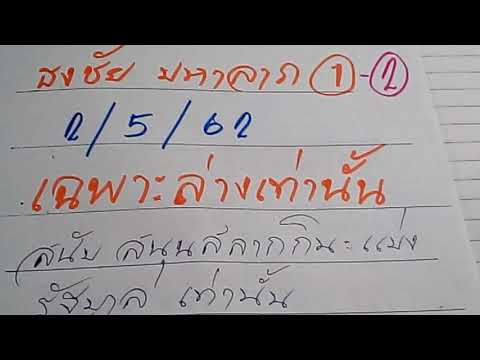 ธงชัย มหาลาภ 1-2
2/5/62
เฉพาะล่างเท่านั้น
สนับสนุนสลากกินแบ่ง
รัฐบาล เท่านั้น